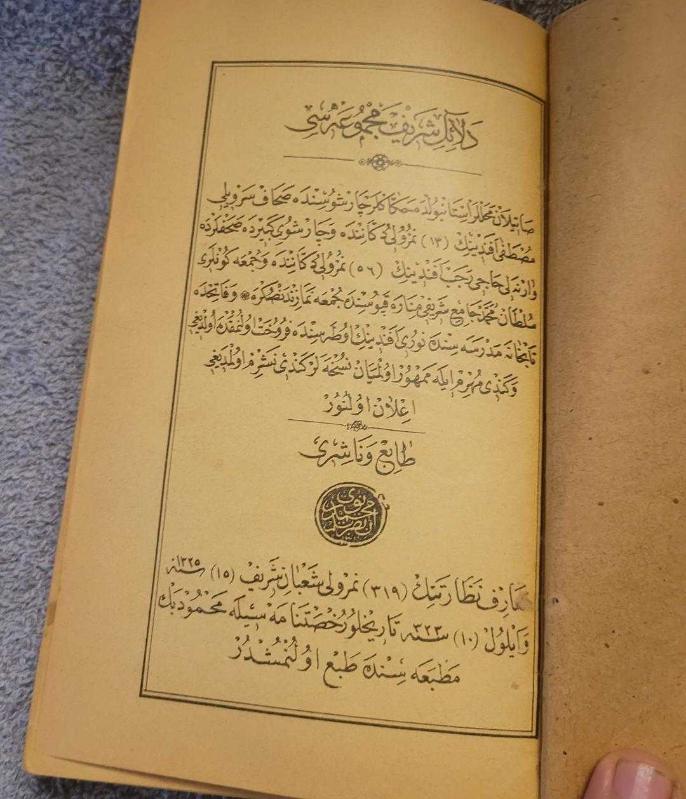 دلائل شريف مجموعه سى
صاتيلان محللر استانبولده حكاكلر چارشوسنده صحاف سرويلى
مصطفى افندينك (١٣) نمرولى دكاننده وچارشوى كبيرده صحفلرده
وارنه لى حاجى رجب افندينك (٥٦) نمرولى دكاننده وجمعه كونلرى
سلطان محمد جامع شريفى مناره قپوسنده جمعه نمازندنصكره وفاتحده
تابخانه مدرسه سنده نورى افندينك اوطه سنده فروخت اولنمقده اولديغى
وكندى مهرم ايله ممهور اولميان نسخه لر كندى نشرم اولمديغى
اعلان اولنور
طابع وناشرى
معارف نظارتنك (٣١٩) نمرولى شعبان شريف (١٥) سنه ١٣٢٥
وايلول (١٠) سنه ٣٢٣ تاريخلو رخصتنامه سيله محمود بك
مطبعه سنده طبع اولنمشدر